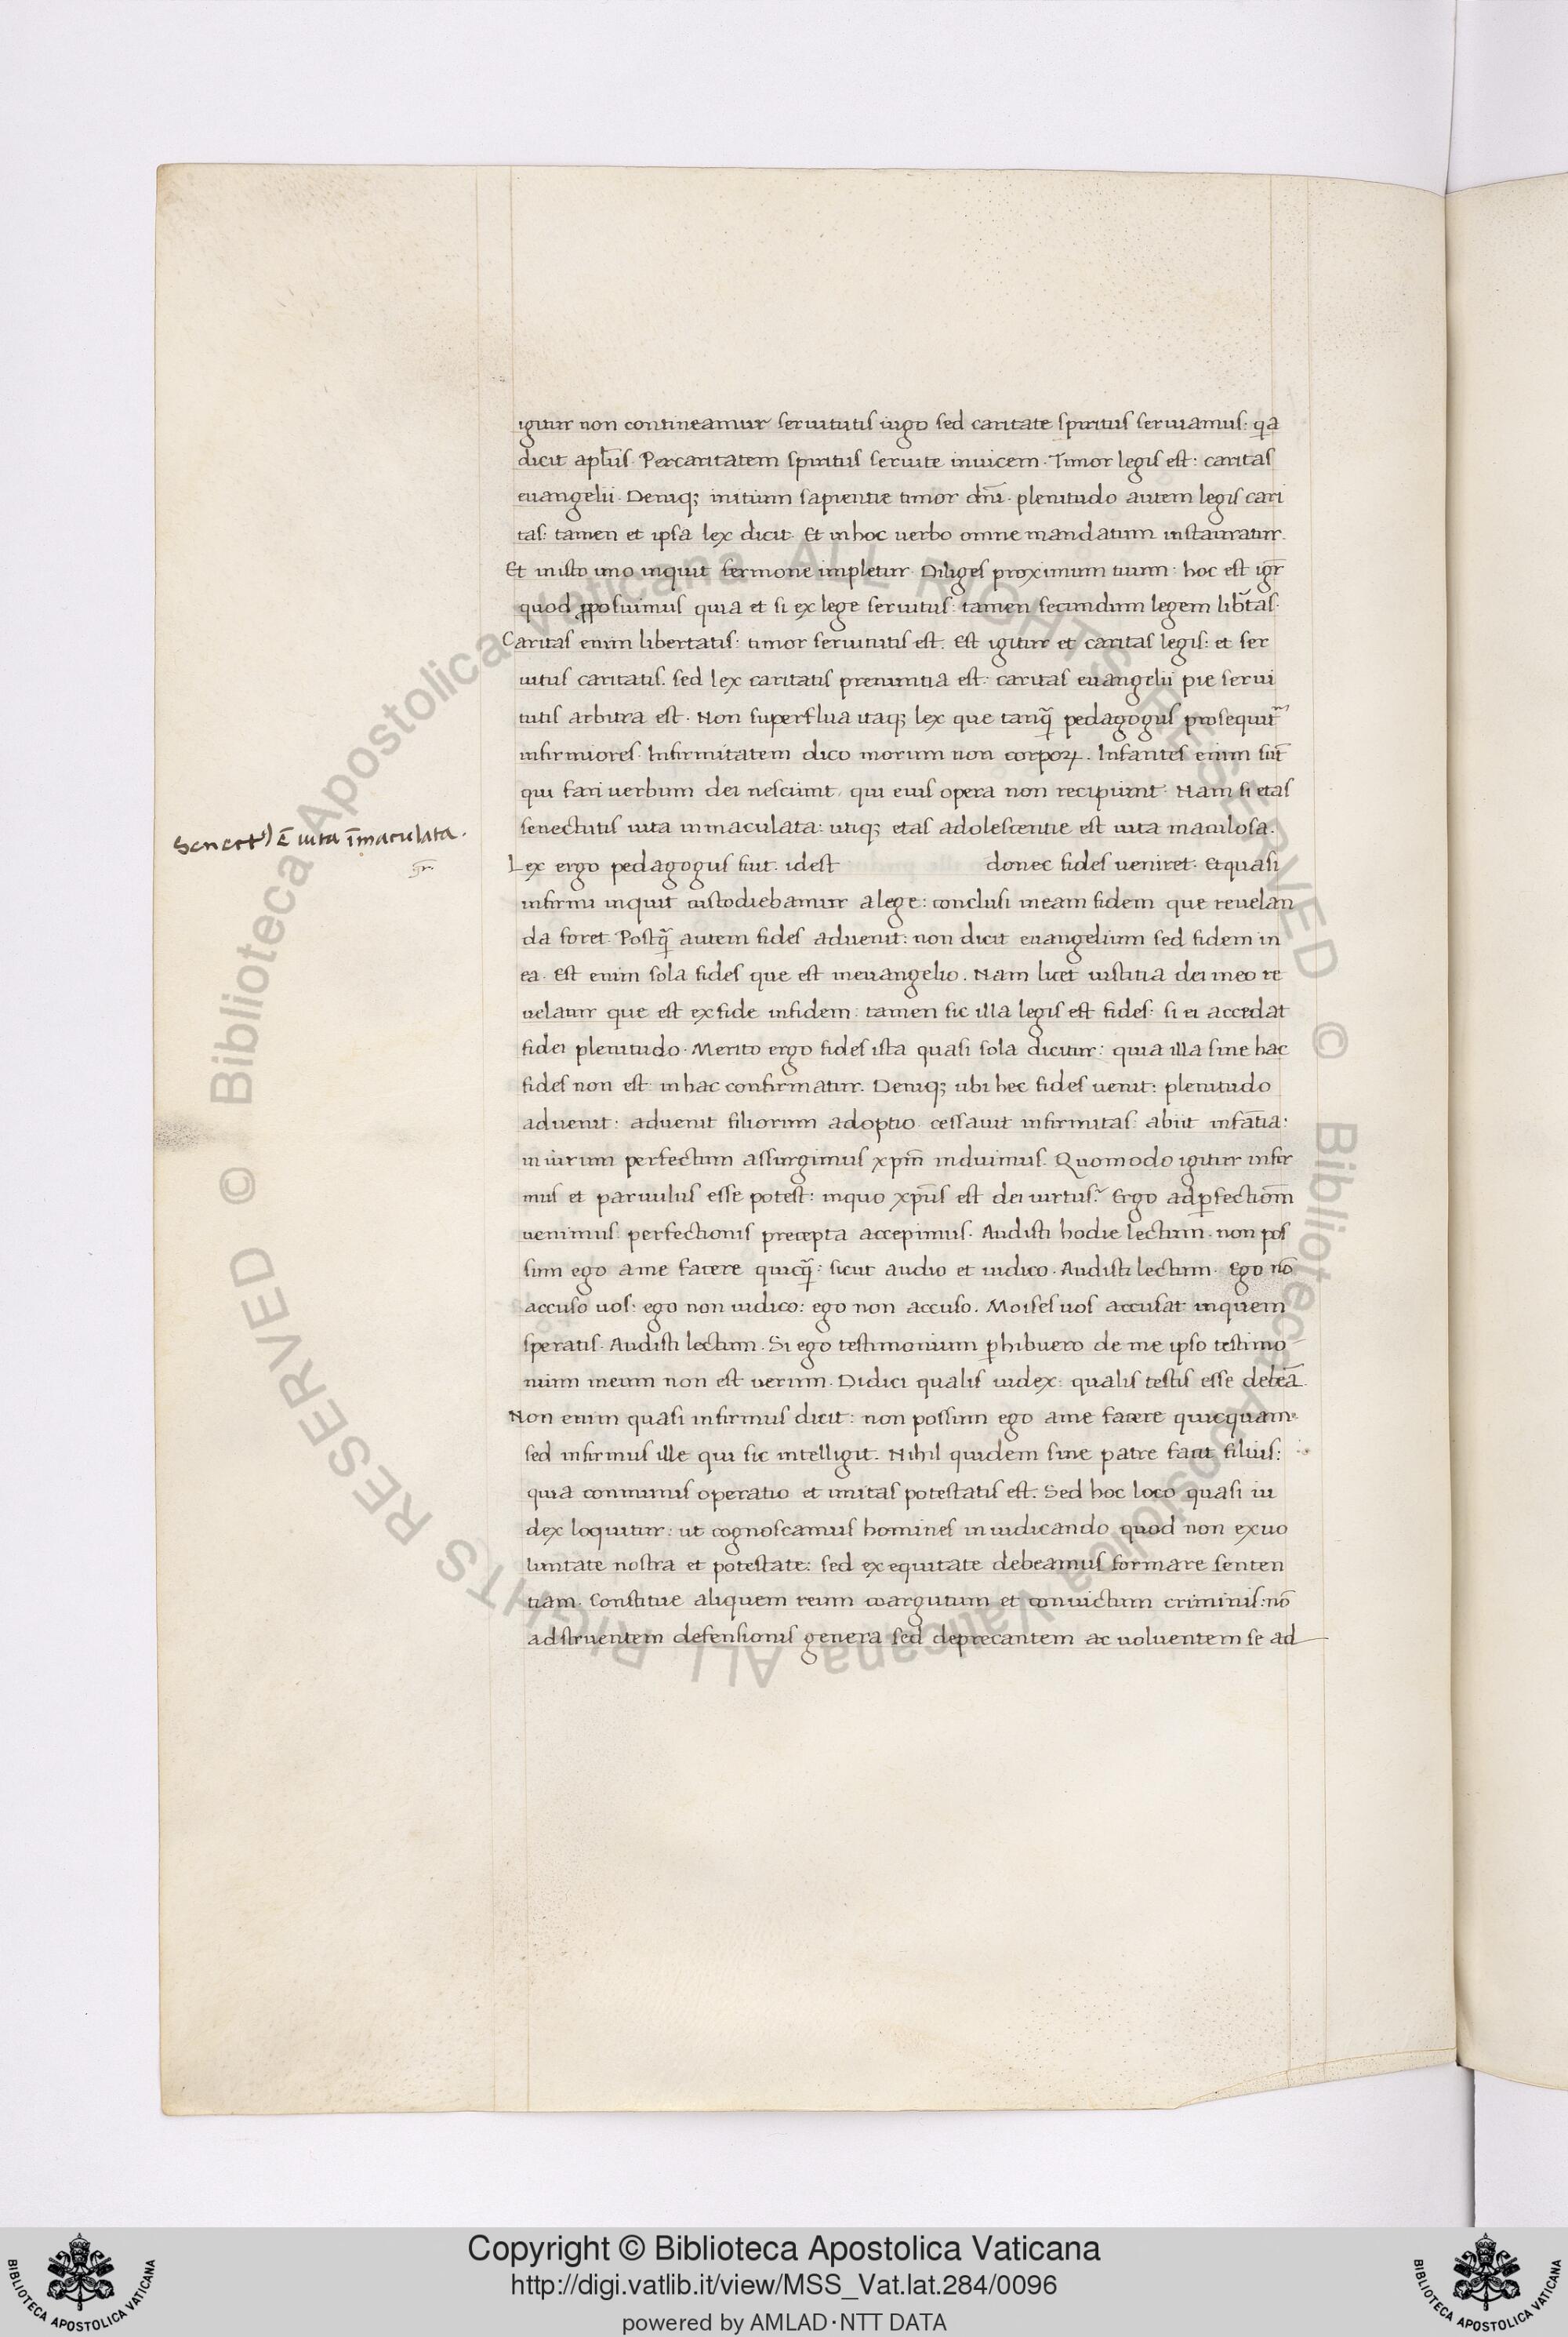 igitur non contineamur seruitutis iugo sed caritate spiritus seruiamus: qa
dicit apl̄us. Percaritatem spiritus seruite inuicem. Timor legis est: caritas
euangelii. Deniq; initium sapientie timor dn̄i. plenitudo autem legis cari
tas: tamen et ipsa lex dicit. Et inhoc uerbo omne mandatum instauratur.
Et inisto uno inquit sermone impletur. Diliges proximum tuum: hoc est igr̄
quod ꝓposuimus quia et si ex lege seruitus: tamen secundum legem lib̄tas.
Caritas enim libertatis: timor seruitutis est. Est igitur et caritas legis: et ser
uitus caritatis. sed lex caritatis prenuntia est: caritas euangelii pie serui
tutis arbitra est. Non superflua itaq; lex que tanq̄ pedagogus prosequit᷑
infirmiores. Infirmitatem dico morum non corpoꝝ. Infantes enim sūt
qui fari uerbum dei nesciunt, qui eius opera non recipiunt. Nam si etas
senectutis uita inmaculata: utiq; etas adolescentie est uita maculosa.
Senectꝰ ē uita īmaculata.
Lex ergo pedagogus fuit. idest donec fides ueniret. Etquasi
infirmi inquit custodiebamur alege: conclusi ineam fidem que reuelan
da foret. Postq̄ autem fides aduenit: non dicit euangelium sed fidem in
ea. Est enim sola fides que est ineuangelio. Nam licet iustitia dei ineo re
uelatur que est exfide infidem: tamen sic illa legis est fides: si ei accedat
fidei plenitudo. Merito ergo fides ista quasi sola dicitur: quia illa sine hac
fides non est: inhac confirmatur. Deniq; ubi hec fides uenit: plenitudo
aduenit: aduenit filiorum adoptio cessauit infirmitas: abiit infātia:
inuirum perfectum assurgimus xpm̄ induimus. Quomodo igitur infir
mus et paruulus esse potest: inquo xpūs est dei uirtus? Ergo adꝑfectiom̄
uenimus: perfectionis precepta accepimus. Audisti hodie lectum. non pos
sum ego ame facere quicq̄: sicut audio et iudico. Audisti lectum. Ego nō
accuso uos: ego non iudico: ego non accuso. Moises uos accusat inquem
speratis. Audisti lectum. Si ego testimonium ꝑhibuero de me ipso testimo
nium meum non est uerum. Didici qualis iudex: qualis testis esse debeā.
Non enim quasi infirmus dicit: non possum ego ame facere quicquam.
sed infirmus ille qui sic intelligit. Nihil quidem sine patre facit filius:
quia communis operatio et unitas potestatis est. Sed hoc loco quasi iu
dex loquitur: ut cognoscamus homines iniudicando quod non exuo
luntate nostra et potestate: sed ex equitate debeamus formare senten
tiam. Constitue aliquem reum coargutum et conuictum criminis: nō
adstruentem defensionis genera sed deprecantem ac uoluentem se ad
© Biblioteca Apostolica Vaticana ALL RIGHTS RESERVED
© Biblioteca Apostolica Vaticana ALL RIGHTS RESERVED
Copyright © Biblioteca Apostolica Vaticana
http://digi.vatlib.it/view/MSS_Vat.lat.284/0096
powered by AMLAD·NTT DATA
BIBLIOTECA APOSTOLICA VATICANA
BIBLIOTECA APOSTOLICA VATICANA